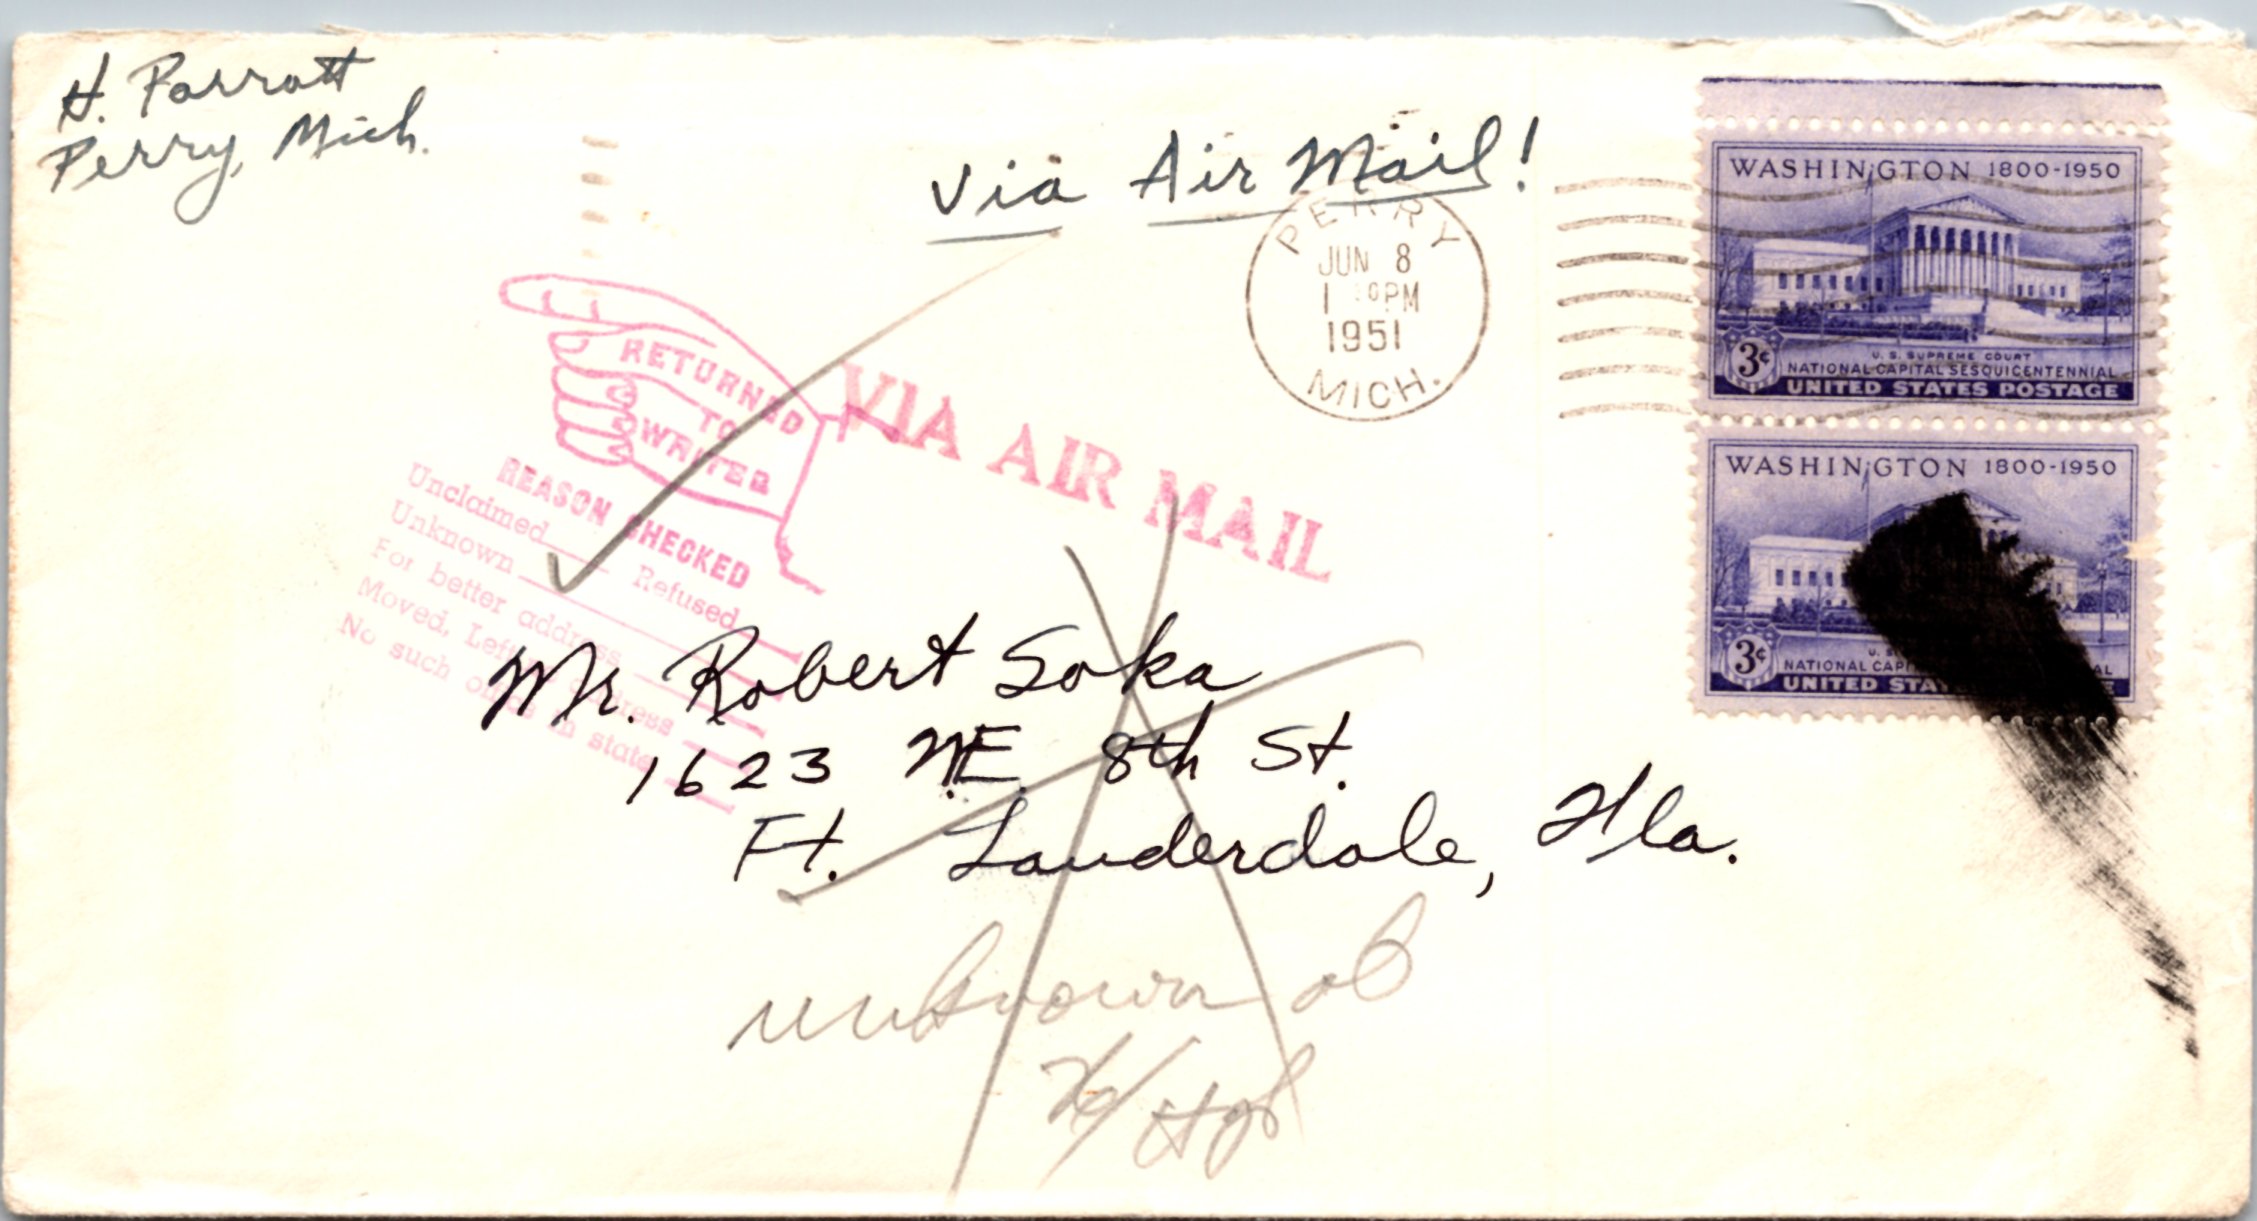 H. Parrott
Perry, Mich.
Via Air Mail!
PERRY
JUN 8
1 30 PM
1951
MICH.
WASHINGTON 1800-1950
3¢
U. S. SUPREME COURT
NATIONAL CAPITAL SESQUICENTENNIAL
UNITED STATES POSTAGE
WASHINGTON 1800-1950
3¢
NATIONAL CAPI AL
UNITED STA
RETURNED
TO
WRITER
VIA AIR MAIL
REASON CHECKED
Unclaimed Refused
Unknown
For better address
Moved, Left address
No such office in state
Mr. Robert Soka
1623 N.E. 8th St.
Ft. Lauderdale, Fla.
unknown